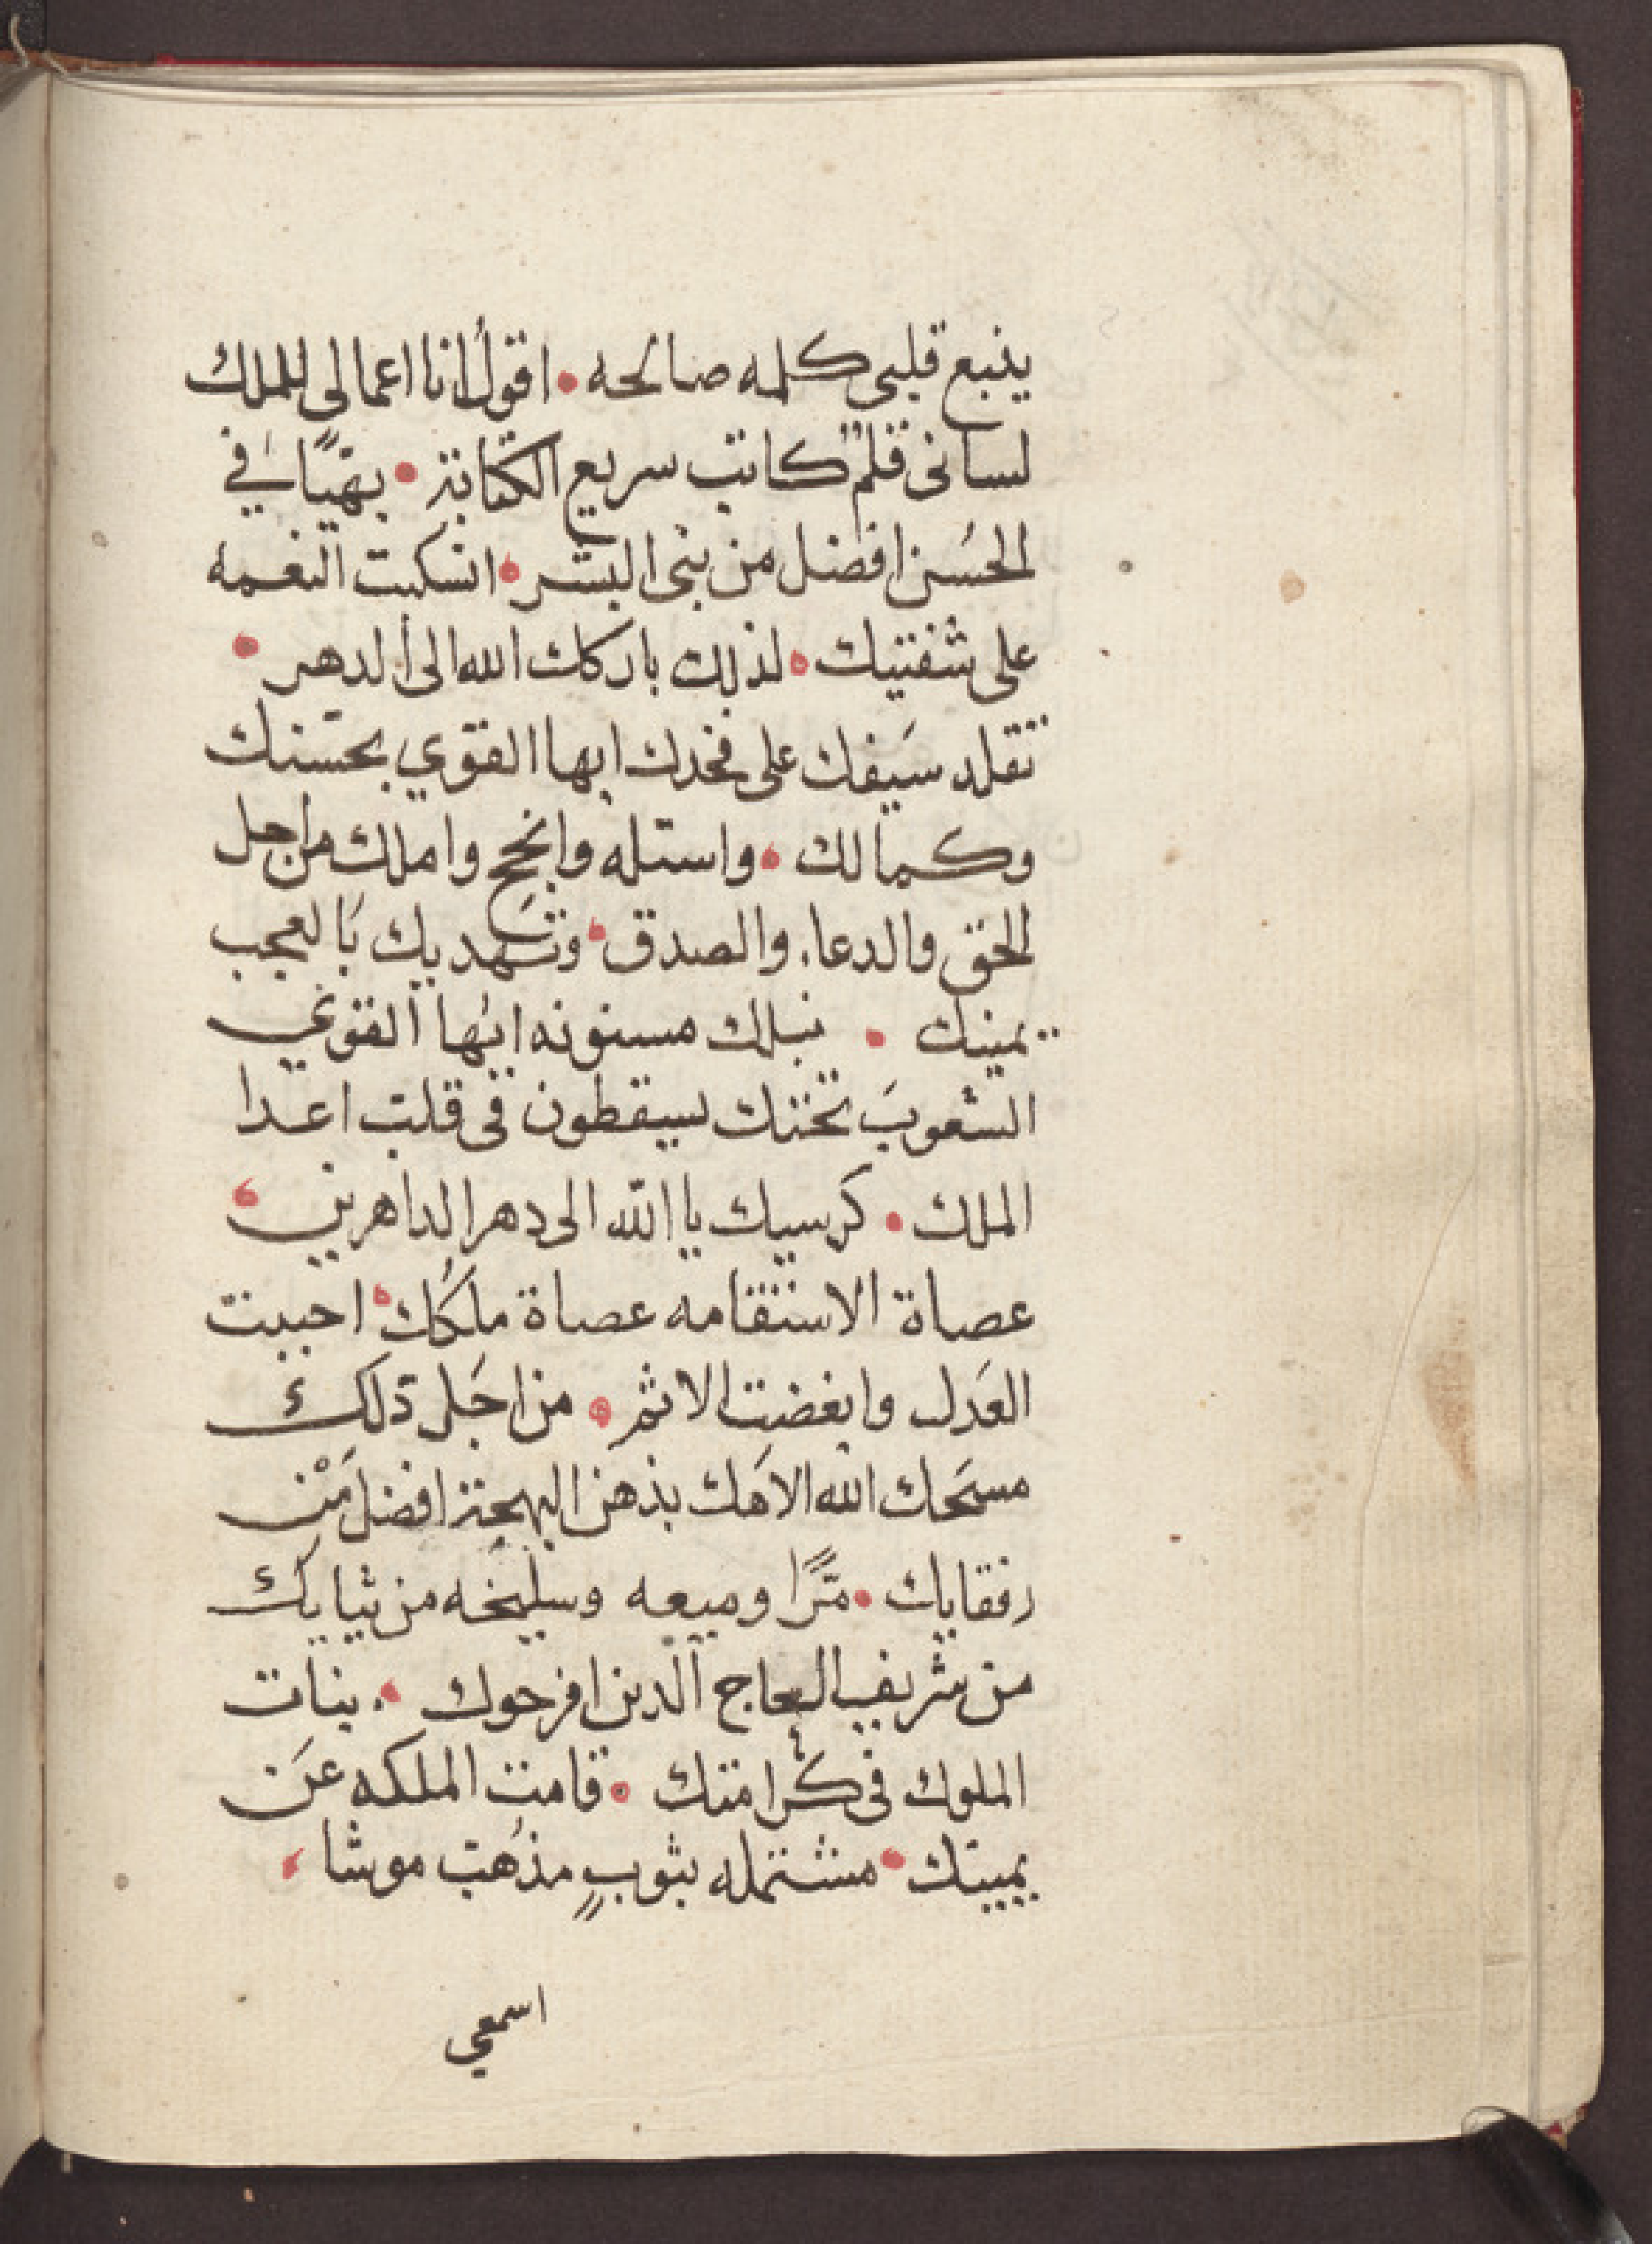 ينبع قلبي كلمه صالحه • اقول انا اعمالى للملك
لسانى قلم كاتب سريع الكتابة • بهيًا في
الحسن افضل من بنى البشر • انسكبت النعمه
على شفتيك • لذلك باركك الله الى الدهر •
تقلد سيفك على فخدك ايها القوي بحسنك
وكمالك • واستله وانجح واملك من اجل
الحق والدعا، والصدق • وتهديك بالعجب
يمينك • نبلك مسنونه ايها القوي
الشعوب تحتك يسقطون فى قلب اعدا
الملك • كرسيك يا الله الى دهر الداهرين •
عصاة الاستقامه عصاة ملكك • احببت
العدل وابغضت الاثم • من اجل ذلك
مسحك الله الاهك بذهن البهجة افضل من
رفقايك • مرًا وميعه وسليخه من ثيابك
من شريف العاج الدين افرحوك • بنات
الملوك فى كرامتك • قامت الملكه عن
يمينك • مشتمله بثوبٍ مذهب موشا •
اسمعي